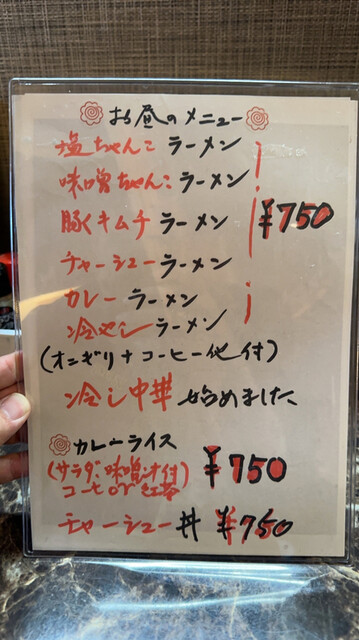 お昼のメニュー
塩ちゃんこ ラーメン
味噌ちゃんこ ラーメン
豚くキムチ ラーメン
¥750
チャーシュー ラーメン
カレー ラーメン
冷やし ラーメン
(オニギリ + コーヒー他 付)
冷し中華 始めました
カレーライス
(サラダ・味噌汁付) ¥750
コーヒ or 紅茶
チャーシュー 丼 ¥750